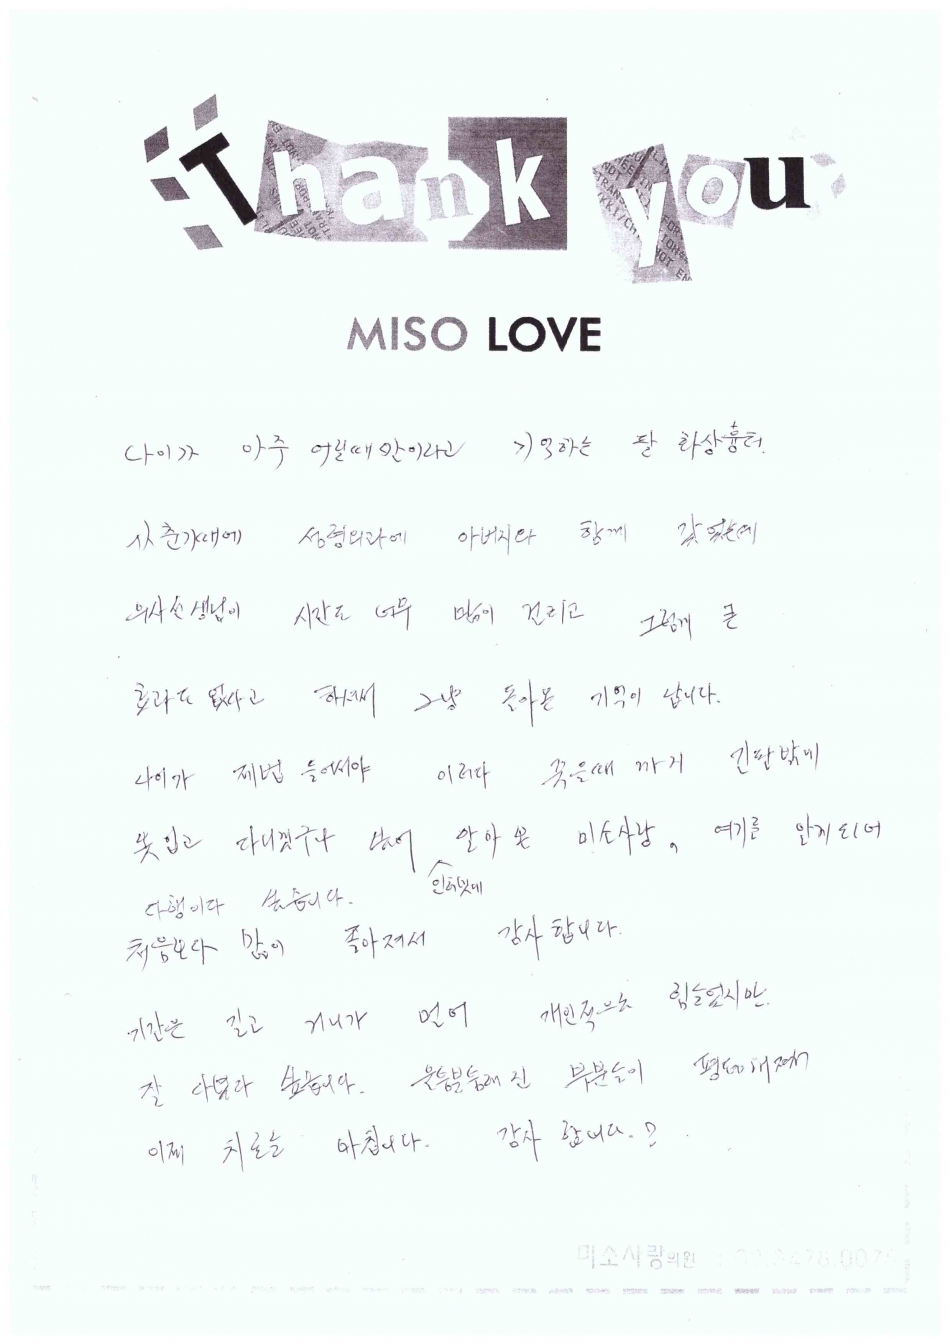 Thank you
MISO LOVE
나이가 아주 어릴때 만이라고 기억하는 팔 화상흉터.
사춘기때에 성형외과에 아버지와 함께 갔었는데
의사선생님이 시간도 너무 많이 걸리고 그렇게 큰
효과도 없다고 하셔서 그냥 돌아온 기억이 납니다.
나이가 제법 들어서야 이러다 죽을때 까지 긴팔밖에
못입고 다니겠구나 싶어 인터넷에 알아 본 미소사랑, 여기를 알게되어
다행이다 싶습니다.
처음보다 많이 좋아져서 감사합니다.
기간은 길고 거리가 멀어 개인적으로 힘들었지만
잘 다녔다 싶습니다. 울퉁불퉁해진 부분들이 평평해져서
이제 치료를 마칩니다. 감사합니다.
미소사랑의원 02.3476.0075